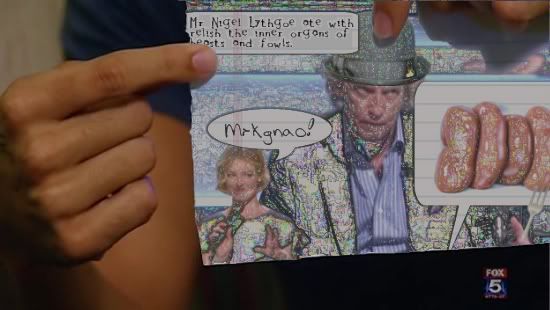 Mr Nigel Lythgoe ate with
relish the inner organs of
beasts and fowls.
Mrkgnao!
FOX
5